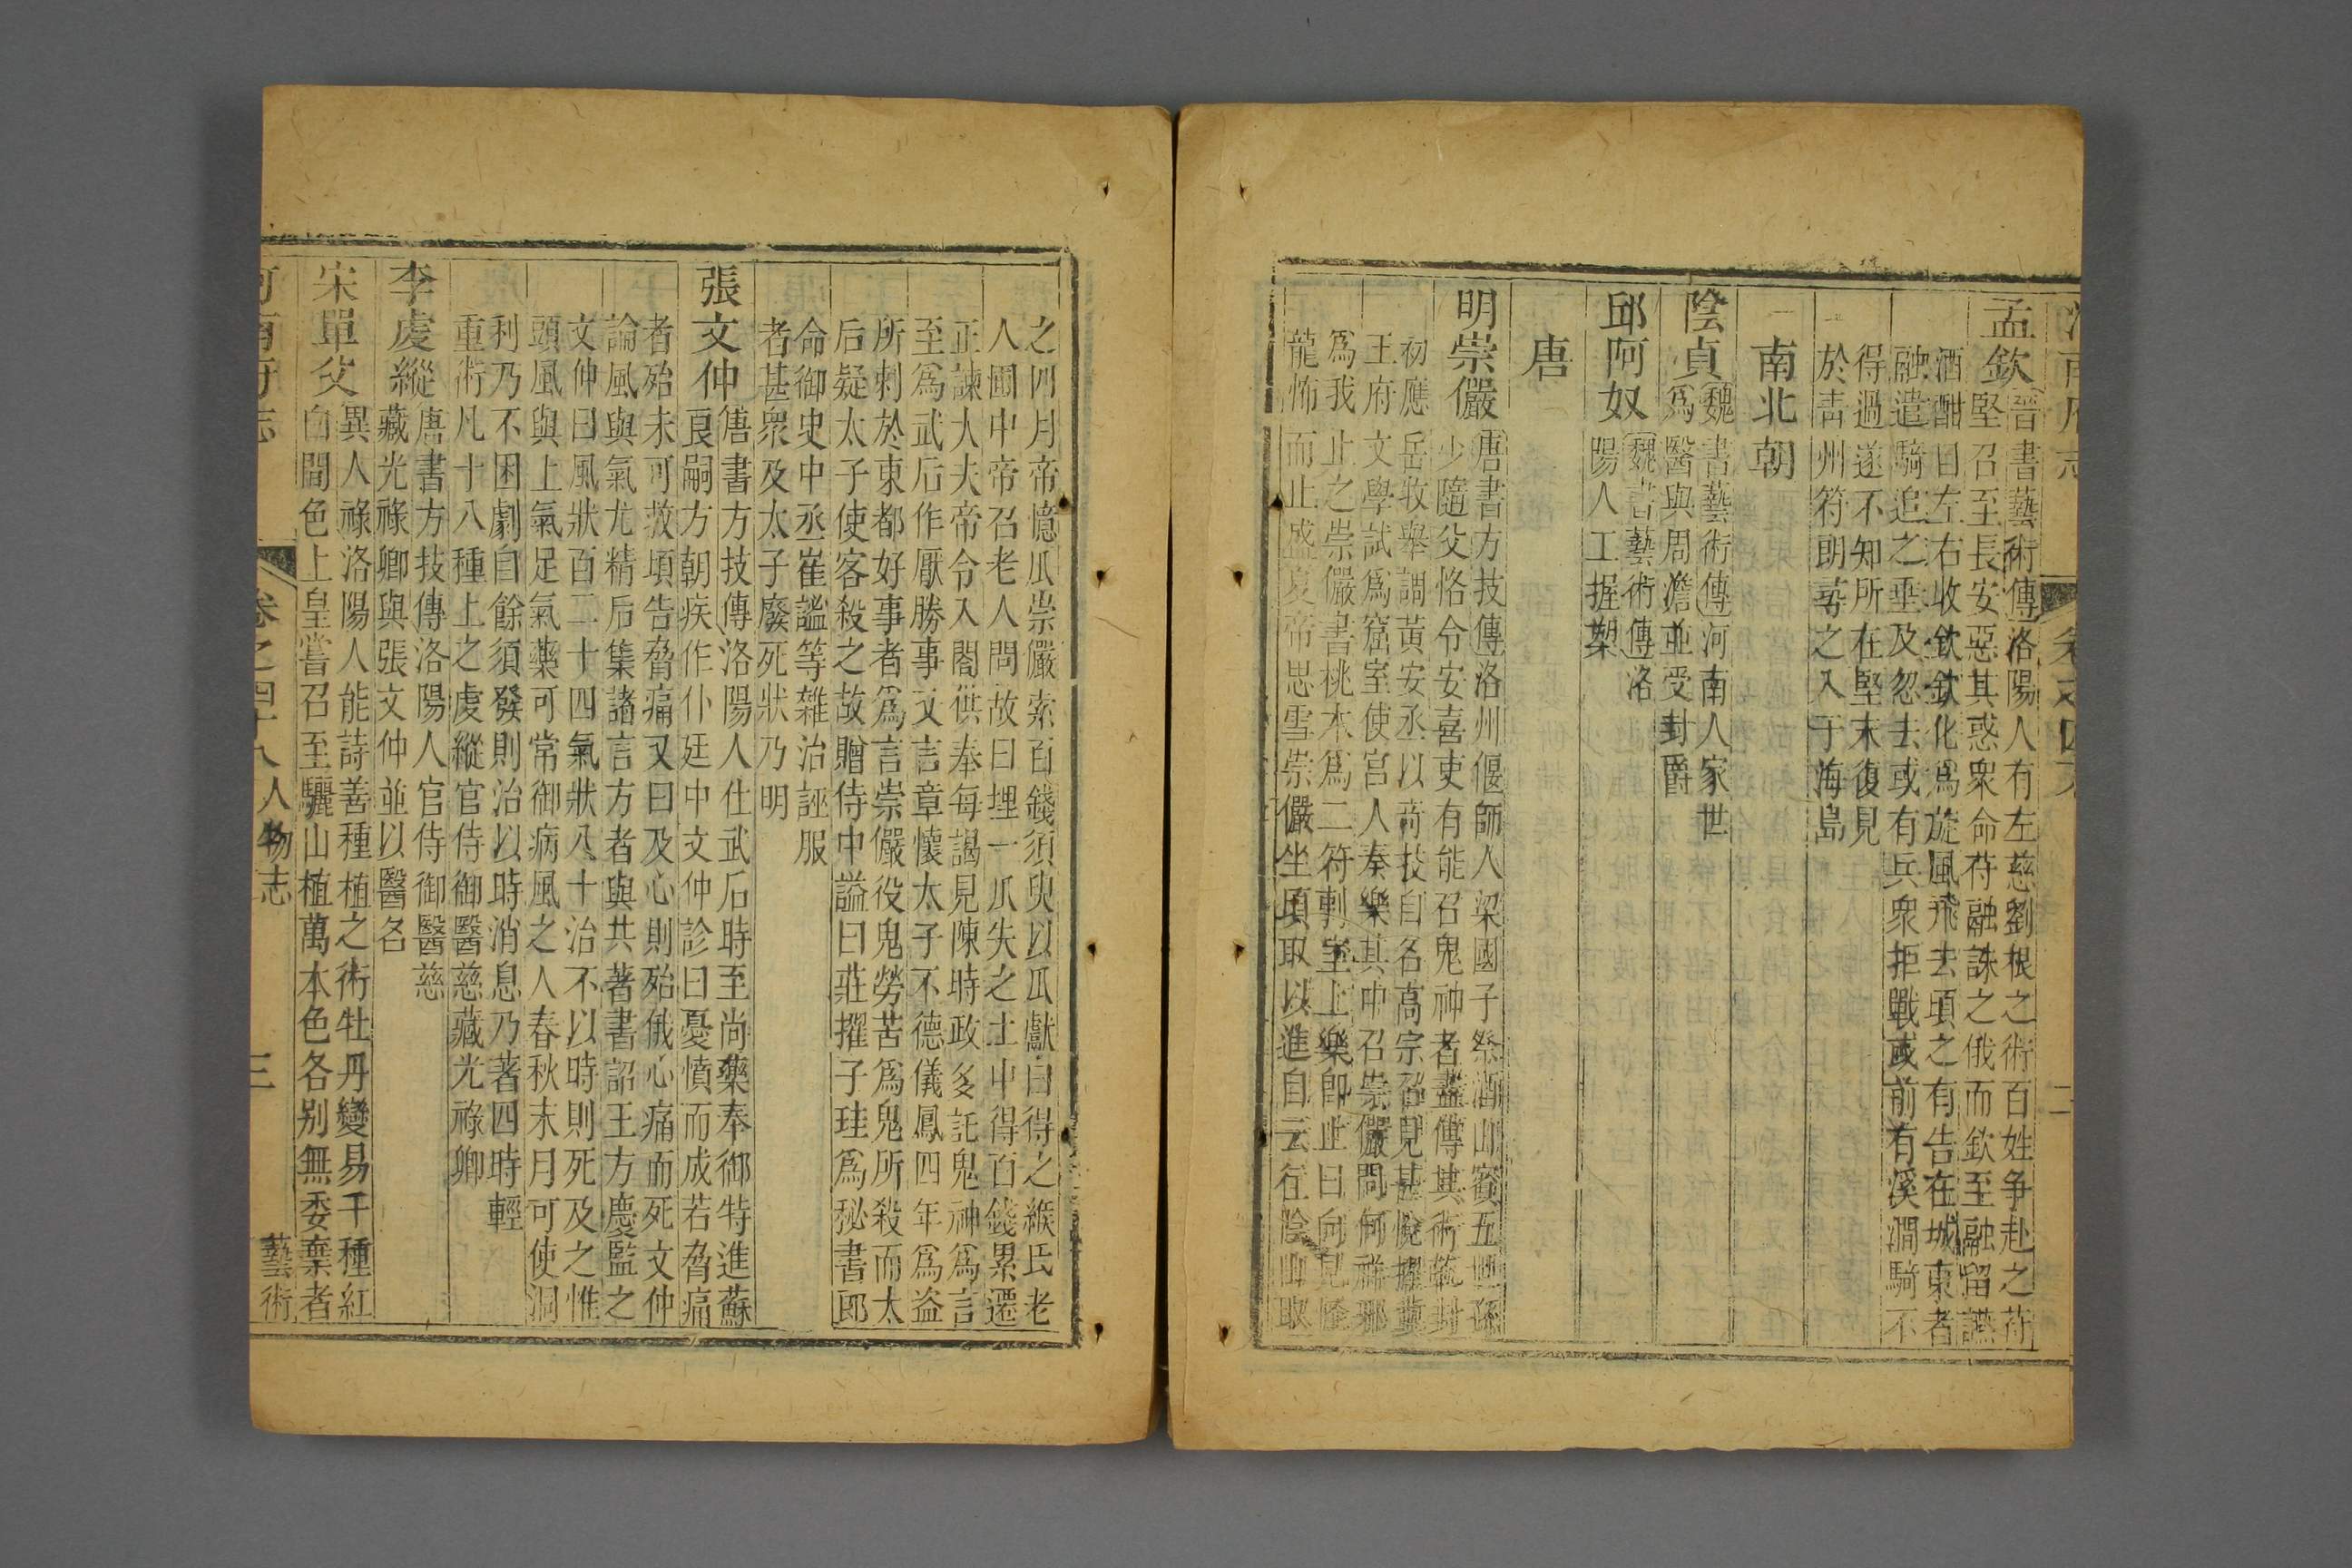 孟欽晉書藝術傳洛陽人有左慈劉根之術百姓争赴之苻
堅召至長安惡其惑衆命苻融誅之俄而欽至融留讌
酒酣目左右收欽欽化爲旋風飛去頃之有告在城東者
融遣騎追之垂及忽去或有兵衆拒戰或前有溪澗騎不
得過遂不知所在堅末復見
於靑州符朗尋之入于海島
南北朝
陰貞魏書藝術傳河南人家世
爲醫與周澹並受封爵
邱阿奴魏書藝術傳洛
陽人工握槊
唐
明崇儼唐書方技傳洛州偃師人梁國子祭酒山賓五世孫
少隨父恪令安喜吏有能召鬼神者盡傳其術乾封
初應岳牧舉調黃安丞以奇技自名高宗召見甚悅擢冀
王府文學試爲窟室使宮人奏樂其中召崇儼問何祥邪
爲我止之崇儼書桃木爲二符剚室上樂卽止曰向見怪
龍怖而止盛夏帝思雪崇儼坐頃取以進自云往陰山取
之四月帝憶瓜崇儼索百錢須臾以瓜獻曰得之緱氏老
人圃中帝召老人問故曰埋一瓜失之土中得百錢累遷
正諫大夫帝令入閤供奉每謁見陳時政多託鬼神爲言
至爲武后作厭勝事又言章懷太子不德儀鳳四年爲盜
所刺於東都好事者爲言崇儼役鬼勞苦爲鬼所殺而太
后疑太子使客殺之故贈侍中謚曰莊擢子珪爲秘書郎
命御史中丞崔謐等雜治誣服
者甚衆及太子廢死狀乃明
張文仲唐書方技傳洛陽人仕武后時至尚藥奉御特進蘇
良嗣方朝疾作仆廷中文仲診曰憂憤而成若脅痛
者殆未可救頃告脅痛又曰及心則殆俄心痛而死文仲
論風與氣尤精后集諸言方者與共著書詔王方慶監之
文仲曰風狀百二十四氣狀八十治不以時則死及之惟
頭風與上氣足氣藥可常御病風之人春秋末月可使洞
利乃不困劇自餘須發則治以時消息乃著四時輕
重術凡十八種上之虔縱官侍御醫慈藏光祿卿
李虔縱唐書方技傳洛陽人官侍御醫慈
藏光祿卿與張文仲並以醫名
宋單父異人祿洛陽人能詩善種植之術牡丹變易千種紅
白間色上皇嘗召至驪山植萬本色各别無委棄者
河南府志 卷之四十八人物志 三 藝術